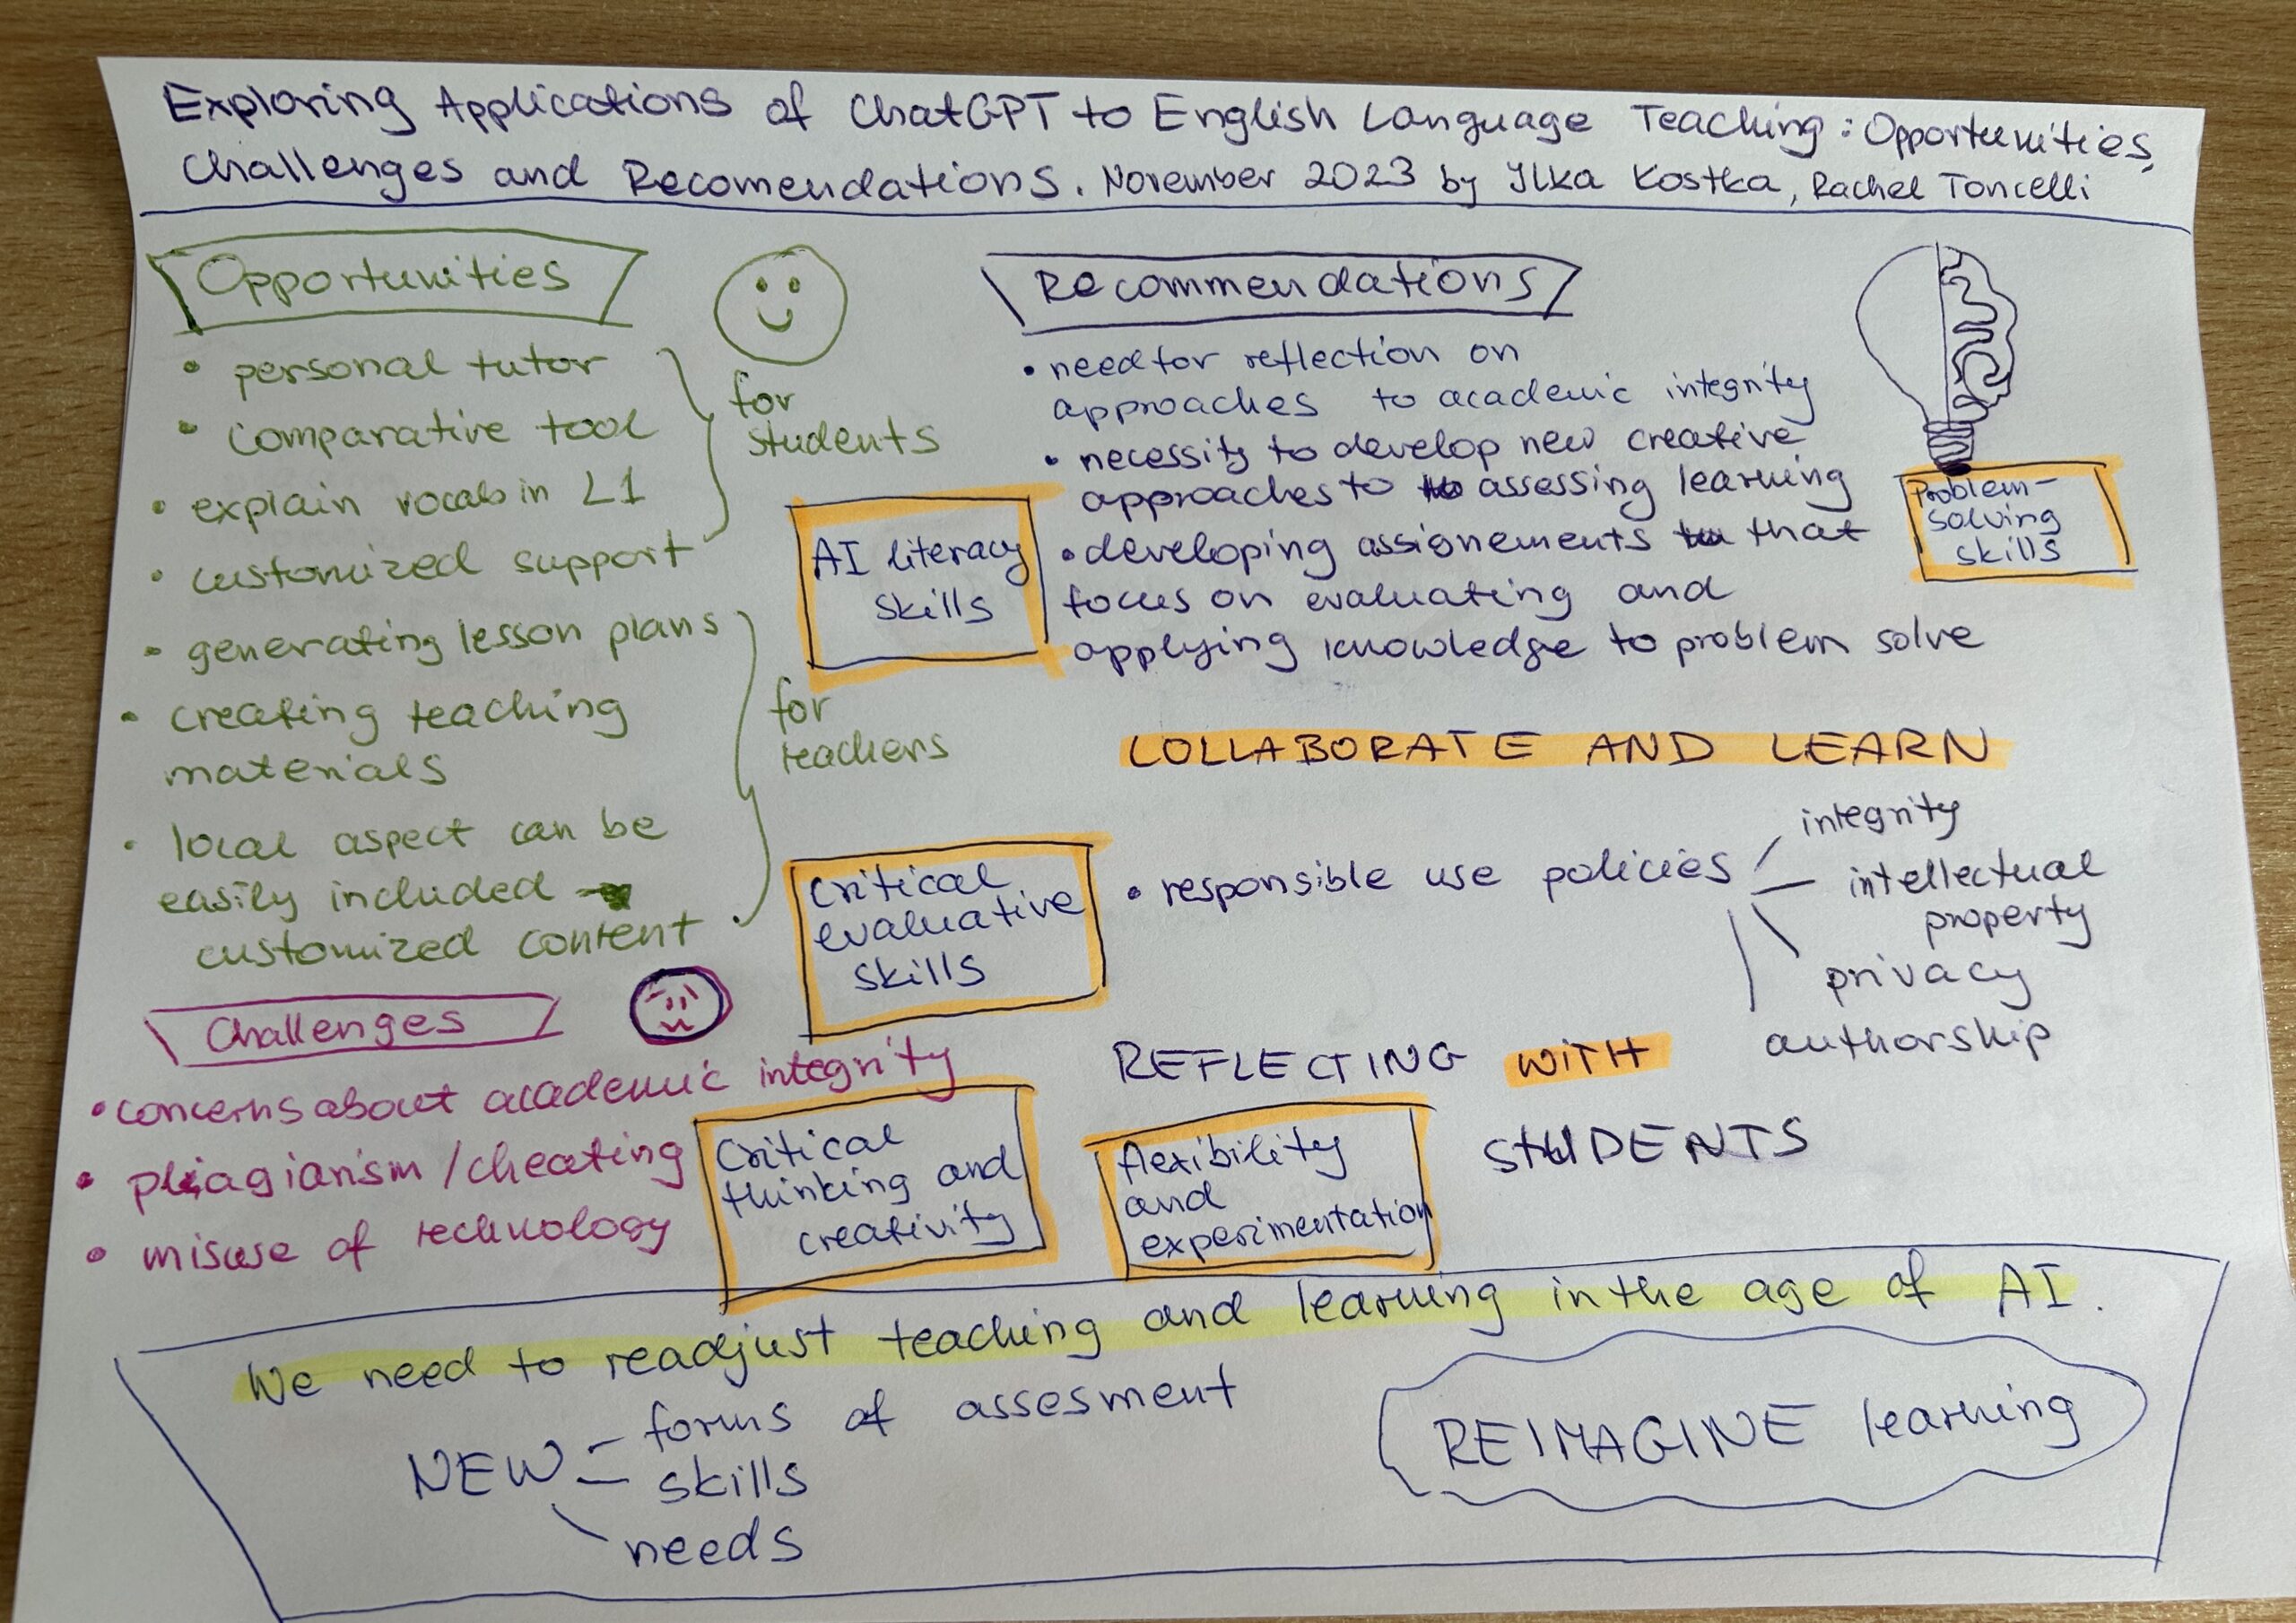 Exploring Applications of ChatGPT to English Language Teaching: Opportunities,
Challenges and Recomendations. November 2023 by Ilka Kostka, Rachel Toncelli
Opportunities
• personal tutor
• comparative tool
• explain vocab in L1
• customized support
for
students
• generating lesson plans
• creating teaching
materials
• local aspect can be
easily included
customized content
for
teachers
Challenges
• concerns about academic integrity
• plagiarism/cheating
• misuse of technology
Recommendations
• need for reflection on
approaches to academic integrity
• necessity to develop new creative
approaches to assessing learning
• developing assignements that
focus on evaluating and
applying knowledge to problem solve
Problem-
solving
skills
AI literacy
skills
COLLABORATE AND LEARN
Critical
evaluative
skills
• responsible use policies
integrity
intellectual
property
privacy
authorship
REFLECTING WITH
STUDENTS
Critical
thinking and
creativity
flexibility
and
experimentation
We need to readjust teaching and learning in the age of AI.
NEW
forms of assesment
skills
needs
REIMAGINE learning